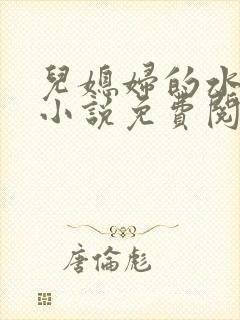 兒媳婦的水
小說免費閱
唐倫彪